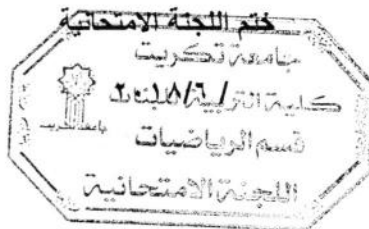 ختم اللجنة الامتحانية
جامعة تكريت
كلية التربية للبنات
٢٠١٨/٦/
قسم الرياضيات
اللجنة الامتحانية
جامعة تكريت